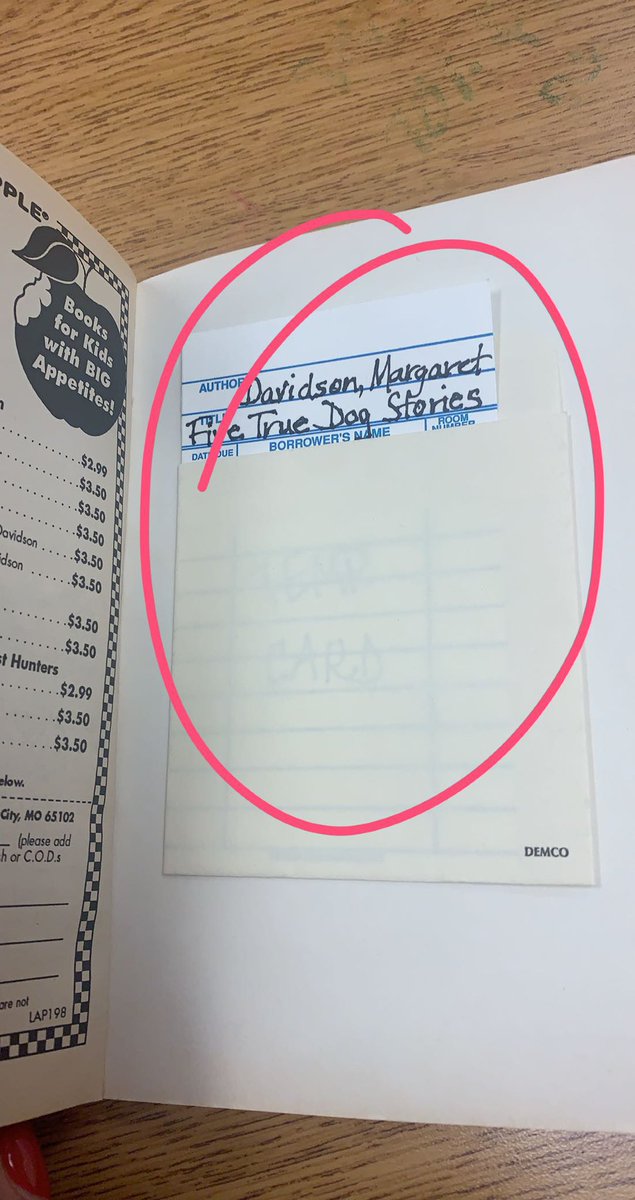 PPLE®
Books
for Kids
with BIG
Appetites!
$2.99
$3.50
$3.50
$3.50
Davidson $3.50
dson $3.50
$3.50
$3.50
st Hunters
$2.99
$3.50
$3.50
elow.
City, MO 65102
(please add
h or C.O.D.s
are not
LAP198
AUTHOR Davidson, Margaret
TITLE Five True Dog Stories
DATE DUE BORROWER'S NAME ROOM NUMBER
CARD
DEMCO